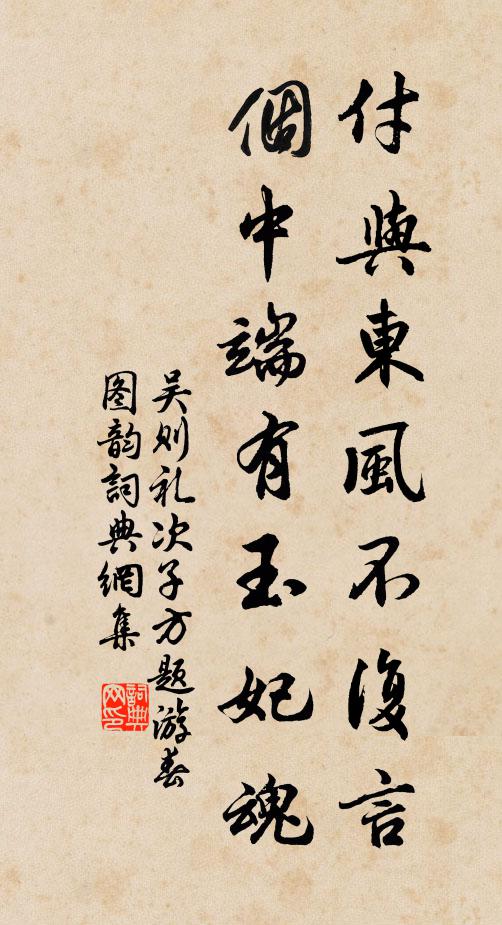 付與東風不復言
個中端有玉妃魂
吴则礼次子方题游春
图韵詞典網集
詞典网印